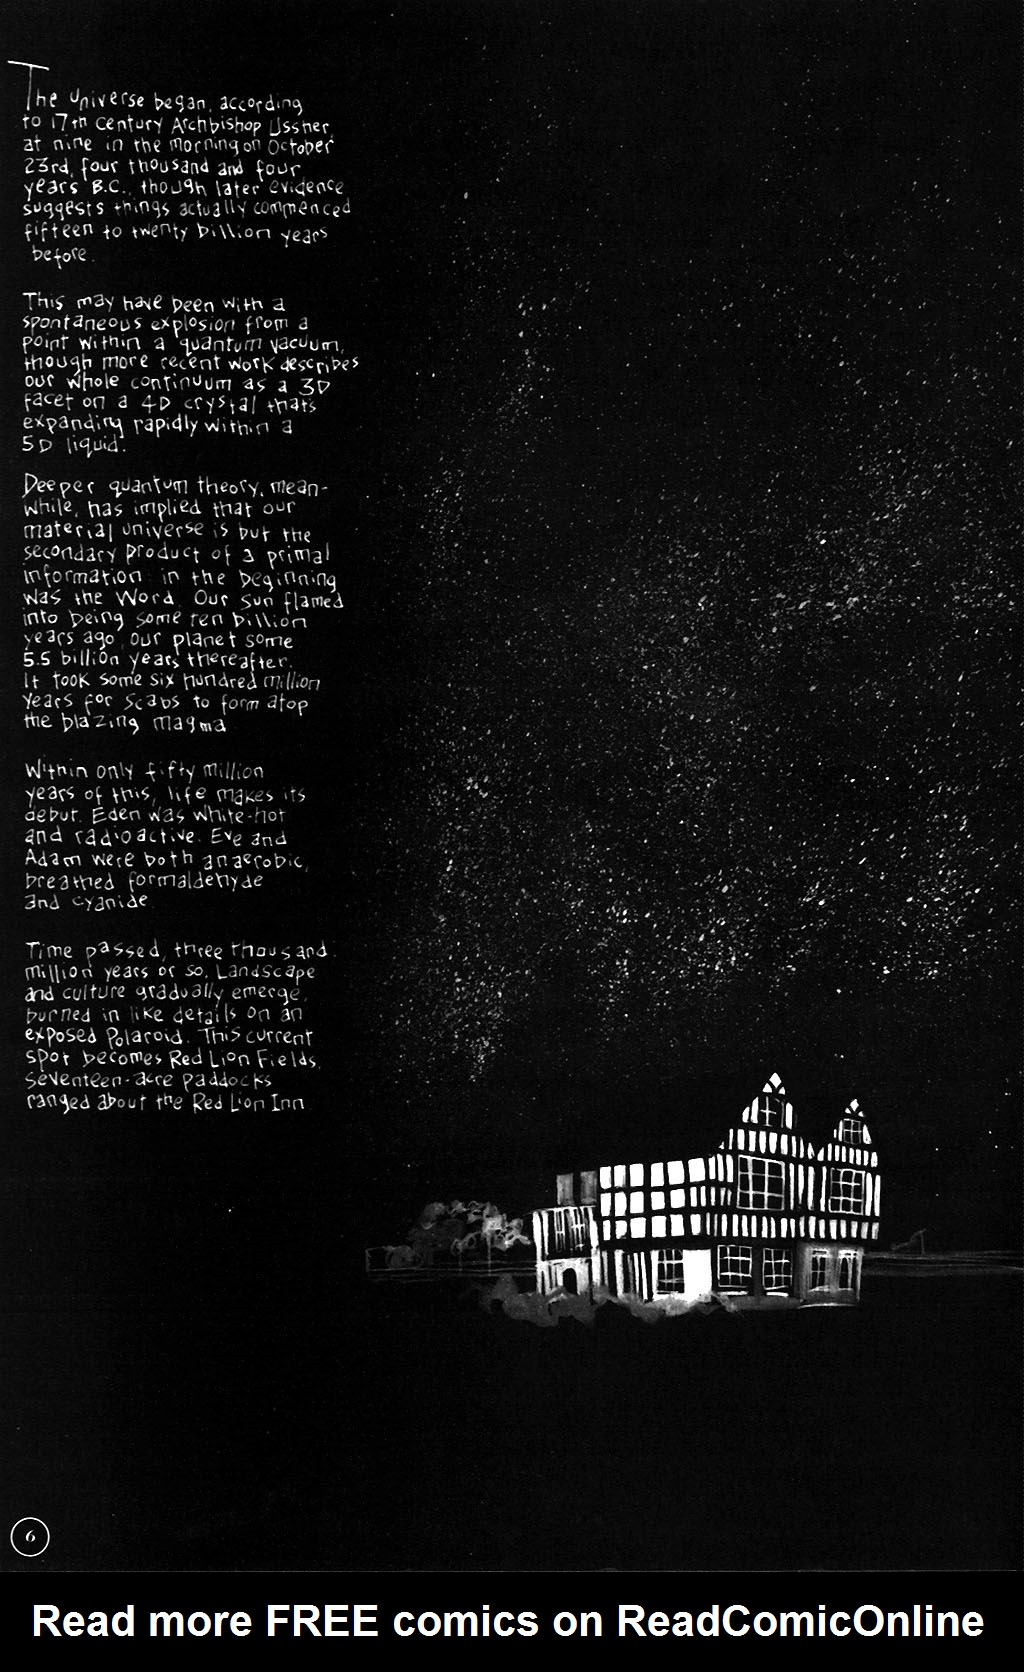 The universe began, according
to 17th century Archbishop Ussher,
at nine in the morning on October
23rd, four thousand and four
years B.C., though later evidence
suggests things actually commenced
fifteen to twenty billion years
before.
This may have been with a
spontaneous explosion from a
point within a quantum vacuum,
though more recent work describes
our whole continuum as a 3D
facet on a 4D crystal thats
expanding rapidly within a
5D liquid.
Deeper quantum theory, mean-
while, has implied that our
material universe is but the
secondary product of a primal
information: in the beginning
was the Word. Our sun flamed
into being some ten billion
years ago, our planet some
5.5 billion years thereafter.
It took some six hundred million
years for scabs to form atop
the blazing magma.
Within only fifty million
years of this, life makes its
debut. Eden was white-hot
and radioactive. Eve and
Adam were both anaerobic,
breathed formaldehyde
and cyanide.
Time passed, three thousand
million years or so. Landscape
and culture gradually emerge,
burned in like details on an
exposed Polaroid. This current
spot becomes Red Lion Fields,
seventeen-acre paddocks
ranged about the Red Lion Inn.
6
Read more FREE comics on ReadComicOnline